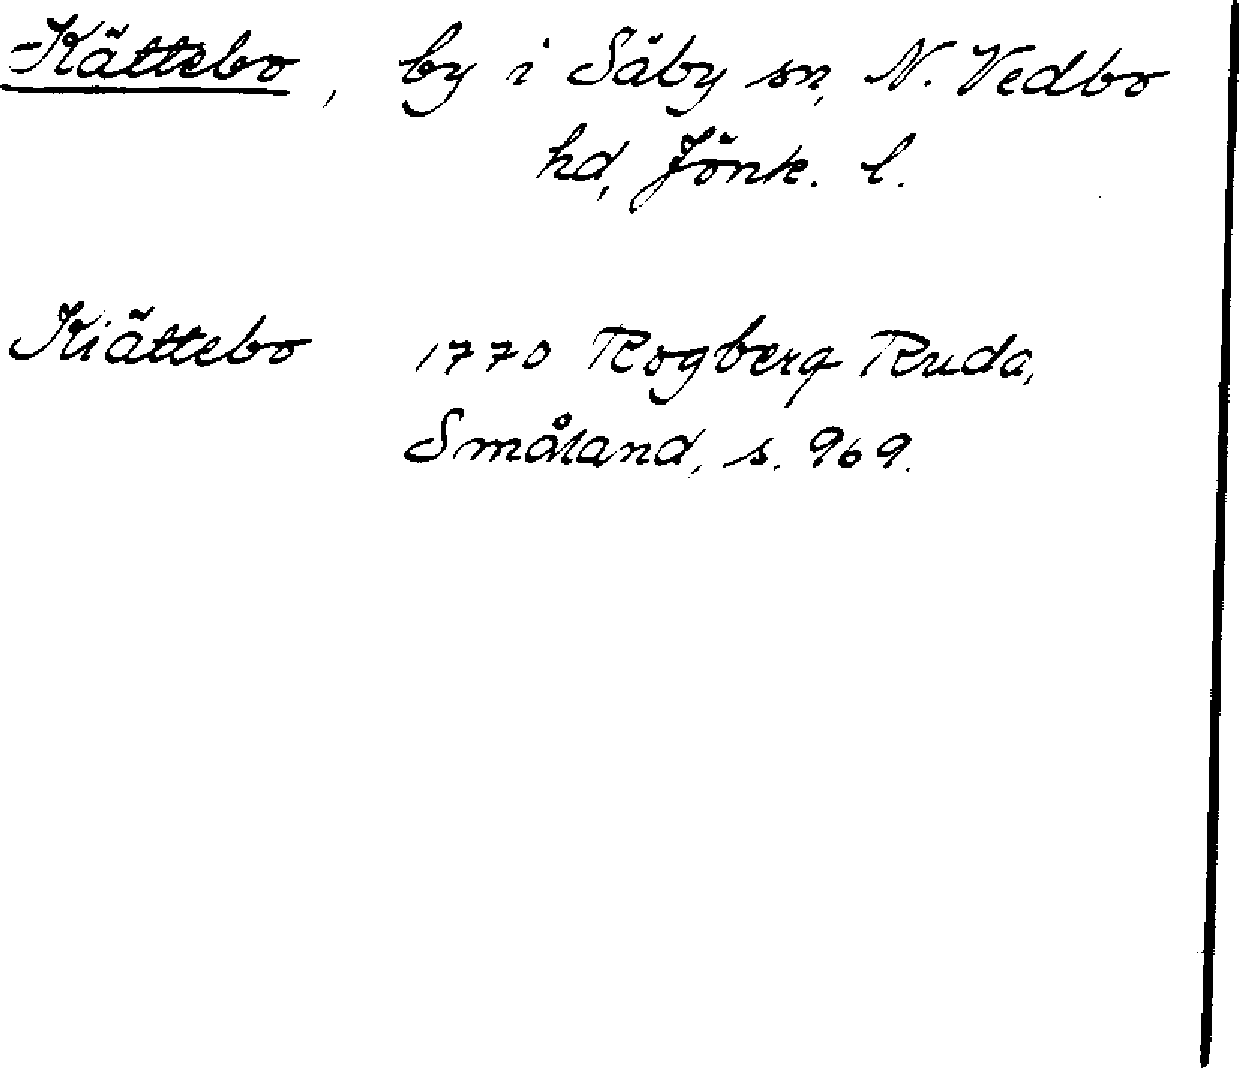 -Kättebo, by i Säby sn, N. Vedbo
hd, Jönk. l.
Kiättebo 1770 Rogberg Ruda,
Småland, s. 969.